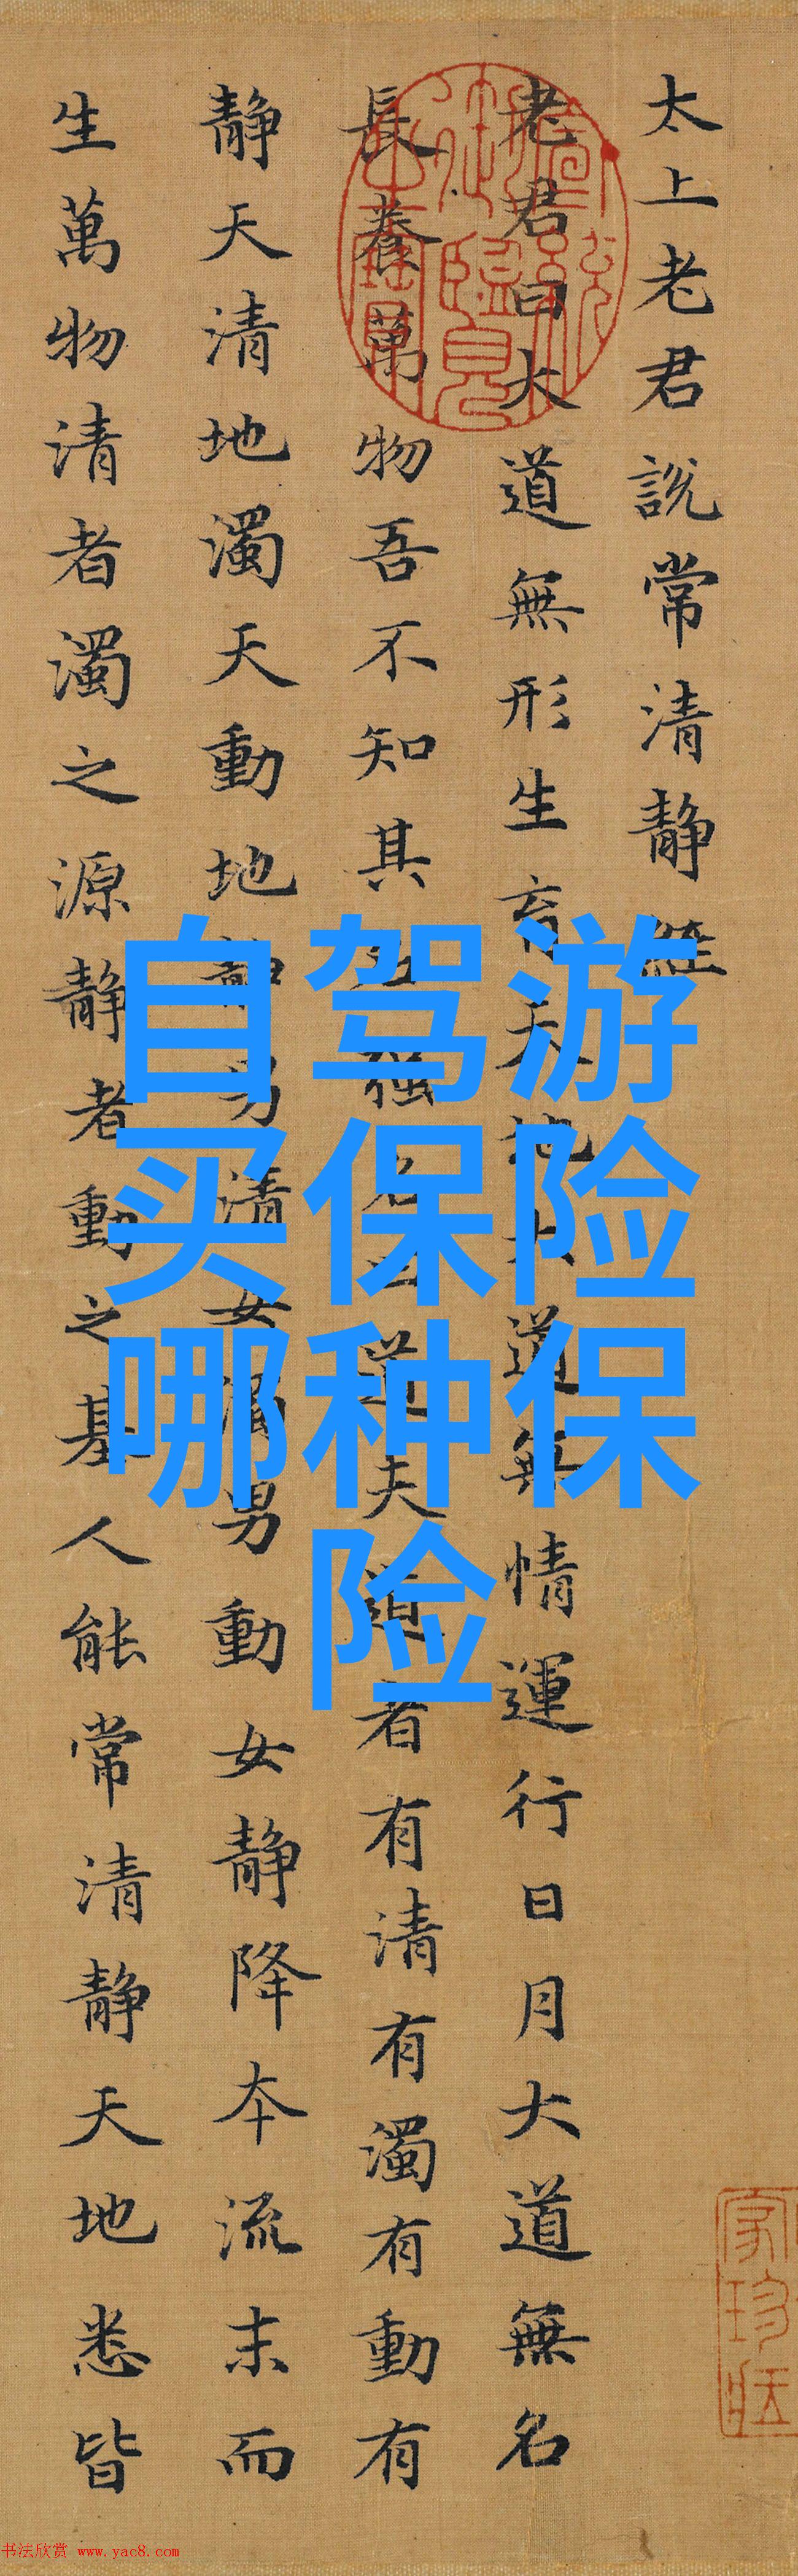 太上老君說常清靜經
老君曰大道無形生育天地大道無情運行日月大道無名
長養萬物吾不知其名強名曰道夫道者有清有濁有動有
靜天清地濁天動地靜男清女濁男動女靜降本流末而
生萬物清者濁之源靜者動之基人能常清靜天地悉皆
自驾游
买保险
哪种保
险
书法欣赏 www.yac8.com